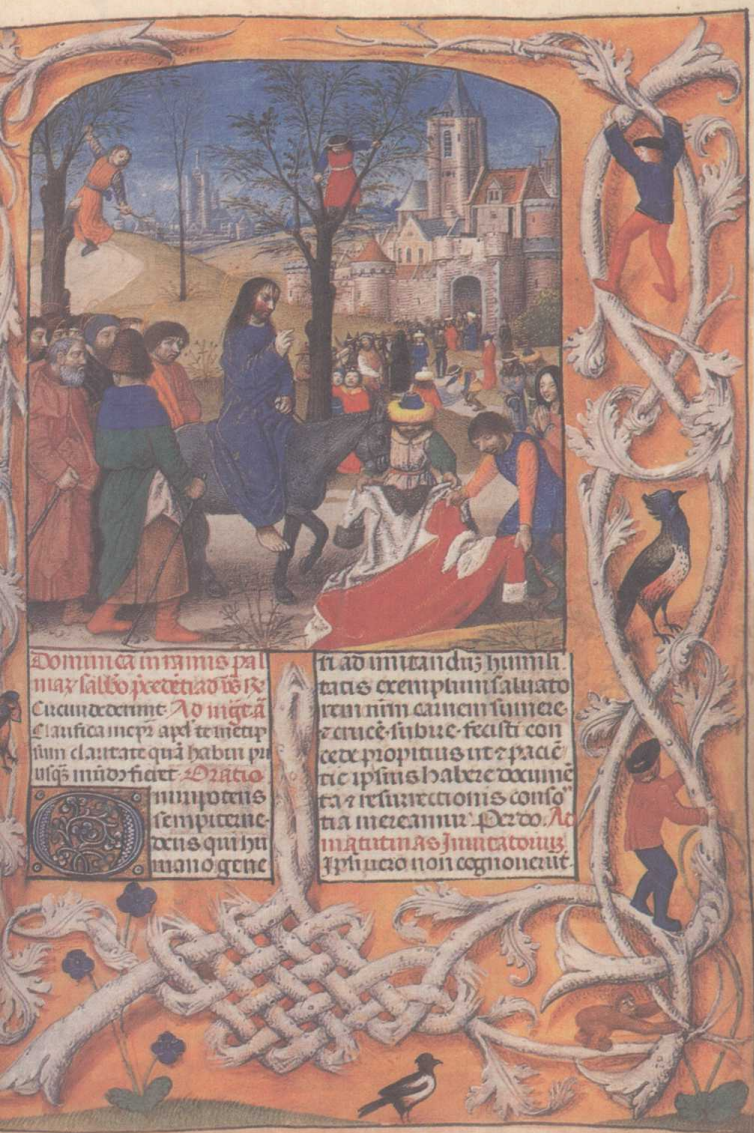 Dominica in ramis pal
maꝝ sabb̄o p̄cedēti ad v̄s R̄e
Circūdederunt. Ad mḡt ā
Clarifica me pr̄ apd̄ te metip
sum claritate quā habui pri
usqꝫ mūdꝰ fieret. Oratio
Omnipotens
sempiterne
deus qui hu
mano gene
ri ad imitanduꝫ humili
tatis exemplum saluato
rem nr̄m carnem sumere
⁊ crucē subire fecisti con
cede propitius ut ⁊ paciē
tie ipsius habere documē
ta ⁊ resurrectionis conso
tia mereamur. Per do. Ad
matutinas Inuitatoriuꝫ
Ipsi uero non cognouerūt